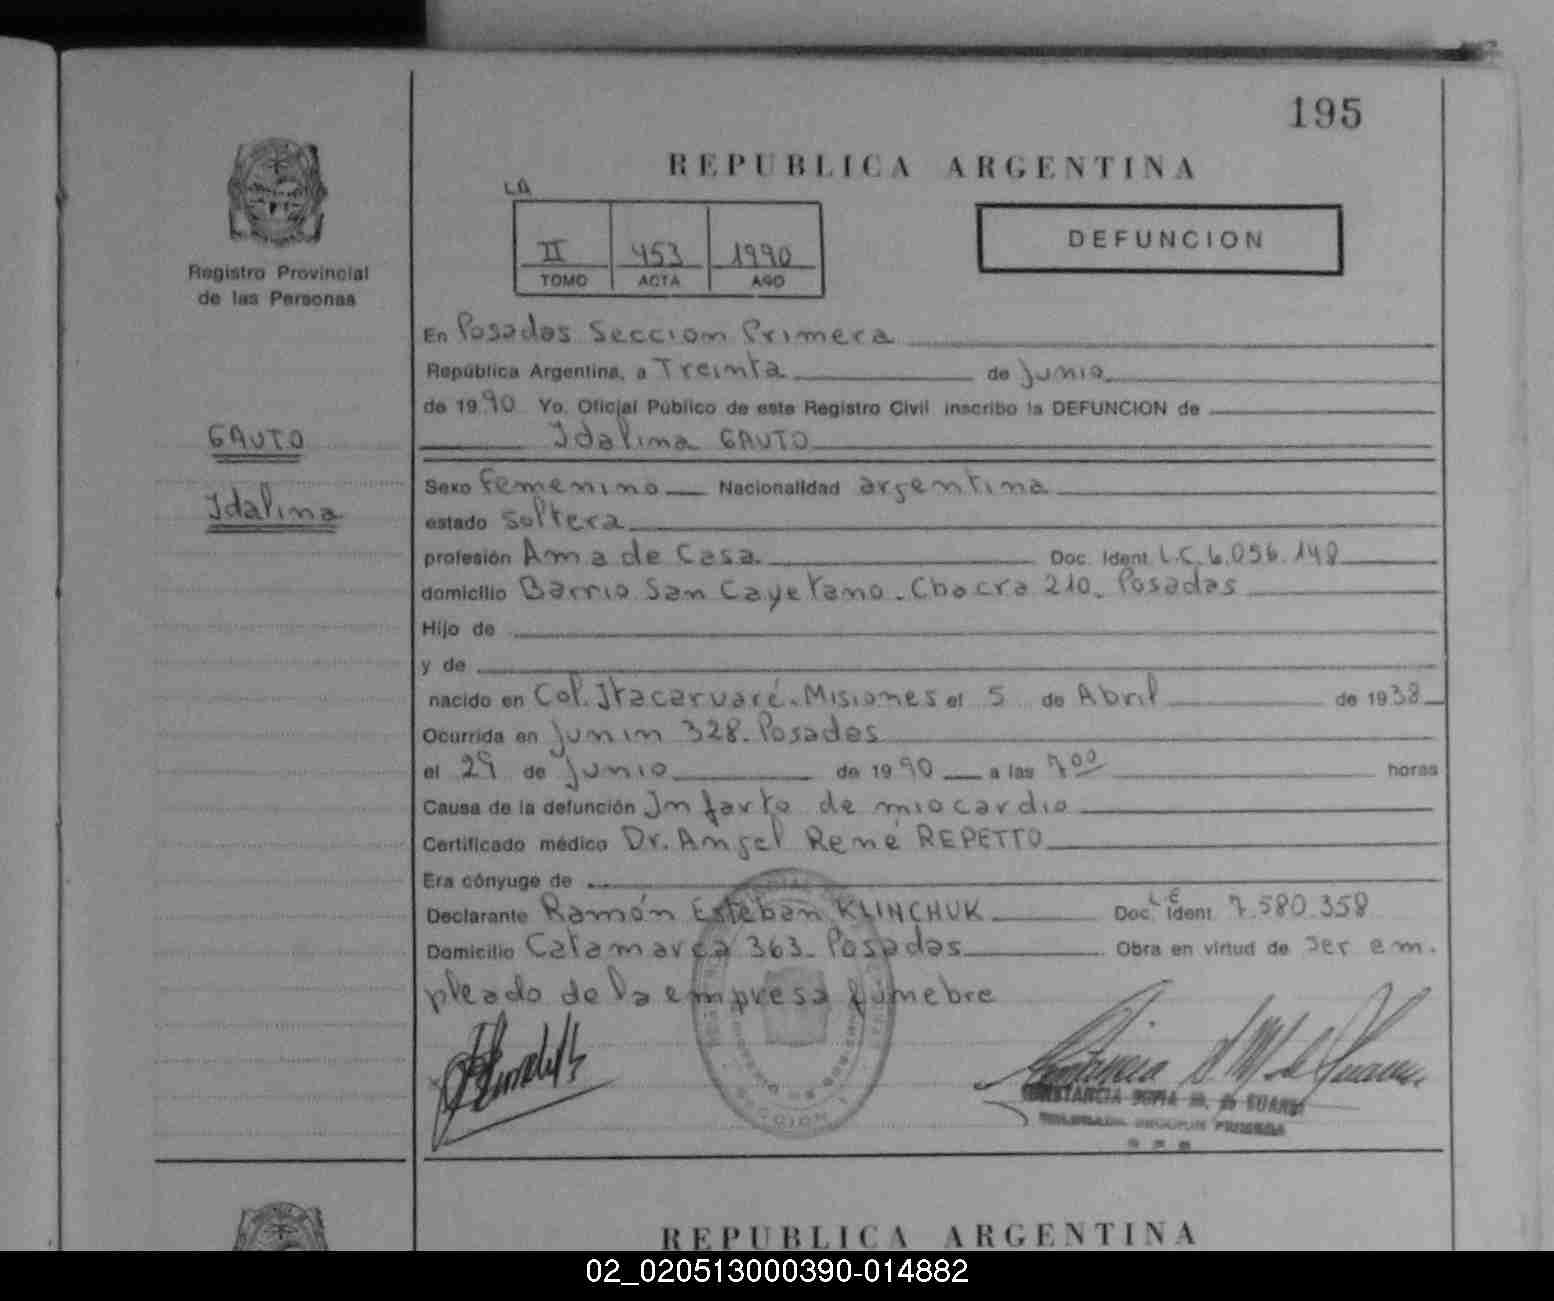 195
REPUBLICA ARGENTINA
LA
II 453 1990
TOMO ACTA AÑO
DEFUNCION
Registro Provincial
de las Personas
GAUTO
Idalina
En Posadas Seccion Primera
República Argentina, a Treinta de Junio
de 1990 Yo. Oficial Público de este Registro Civil inscribo la DEFUNCION de
Idalina GAUTO
Sexo femenino Nacionalidad argentina
estado soltera
profesión Ama de Casa. Doc. Ident. L.C. 6.056.148
domicilio Barrio San Cayetano. Chacra 210. Posadas
Hijo de
y de
nacido en Col. Itacaruaré. Misiones el 5 de Abril de 1938
Ocurrida en Junin 328. Posadas
el 29 de Junio de 1990 a las 7 00 horas
Causa de la defunción Infarto de miocardio
Certificado médico Dr. Angel René REPETTO
Era cónyuge de
Declarante Ramón Esteban KLINCHUK Doc. L.E Ident. 7.580.358
Domicilio Catamarca 363. Posadas Obra en virtud de ser em.
pleado de la empresa fúnebre
CONSTANCIA SOFIA
SECCION PRIMERA
REPUBLICA ARGENTINA
02_020513000390-014882